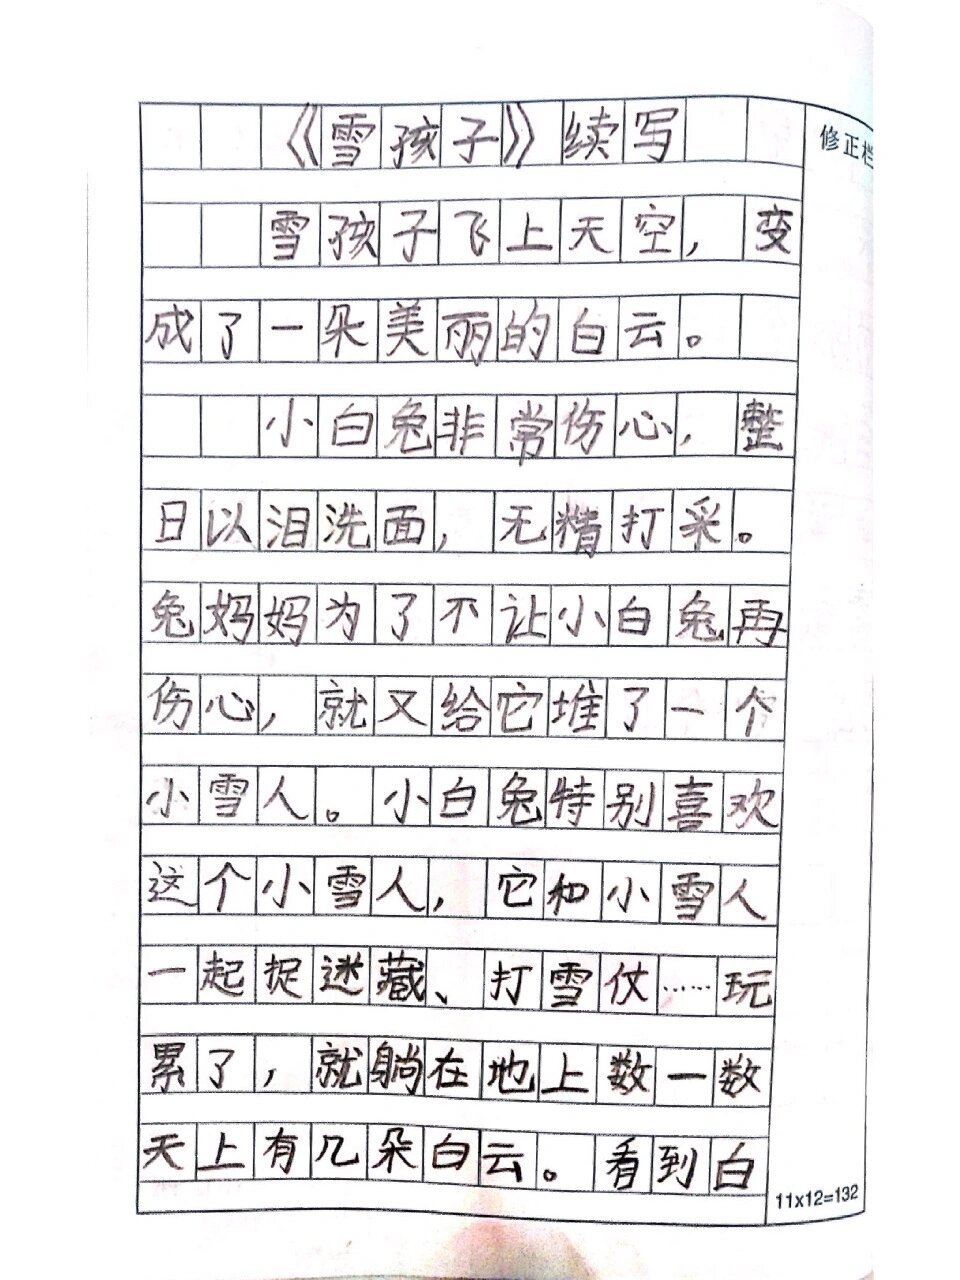 《雪孩子》续写
修正栏
雪孩子飞上天空，变
成了一朵美丽的白云。
小白兔非常伤心，整
日以泪洗面，无精打采。
兔妈妈为了不让小白兔再
伤心，就又给它堆了一个
小雪人。小白兔特别喜欢
这个小雪人，它和小雪人
一起捉迷藏、打雪仗……玩
累了，就躺在地上数一数
天上有几朵白云。看到白
11x12=132